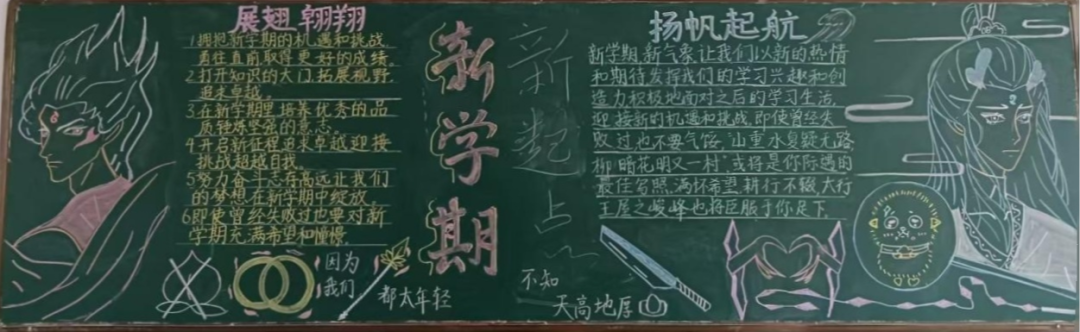 展翅翱翔
1拥抱新学期的机遇和挑战,
勇往直前取得更好的成绩。
2打开知识的大门,拓展视野,
追求卓越。
3在新学期里培养优秀的品
质锤炼坚强的意志。
4开启新征程追求卓越迎接
挑战超越自我。
5努力奋斗志存高远让我们
的梦想在新学期中绽放。
6即使曾经失败过也要对新
学期充满希望和憧憬。
因为
我们
都太年轻
新学期
新起点
不知
天高地厚
扬帆起航
新学期,新气象,让我们以新的热情
和期待发挥我们的学习兴趣和创
造力积极地面对之后的学习生活,
迎接新的机遇和挑战,即使曾经失
败过也不要气馁,"山重水复疑无路,
柳暗花明又一村"或将是你际遇的
最佳写照,满怀希望,耕行不辍,太行
王屋之峻峰也将臣服于你足下。